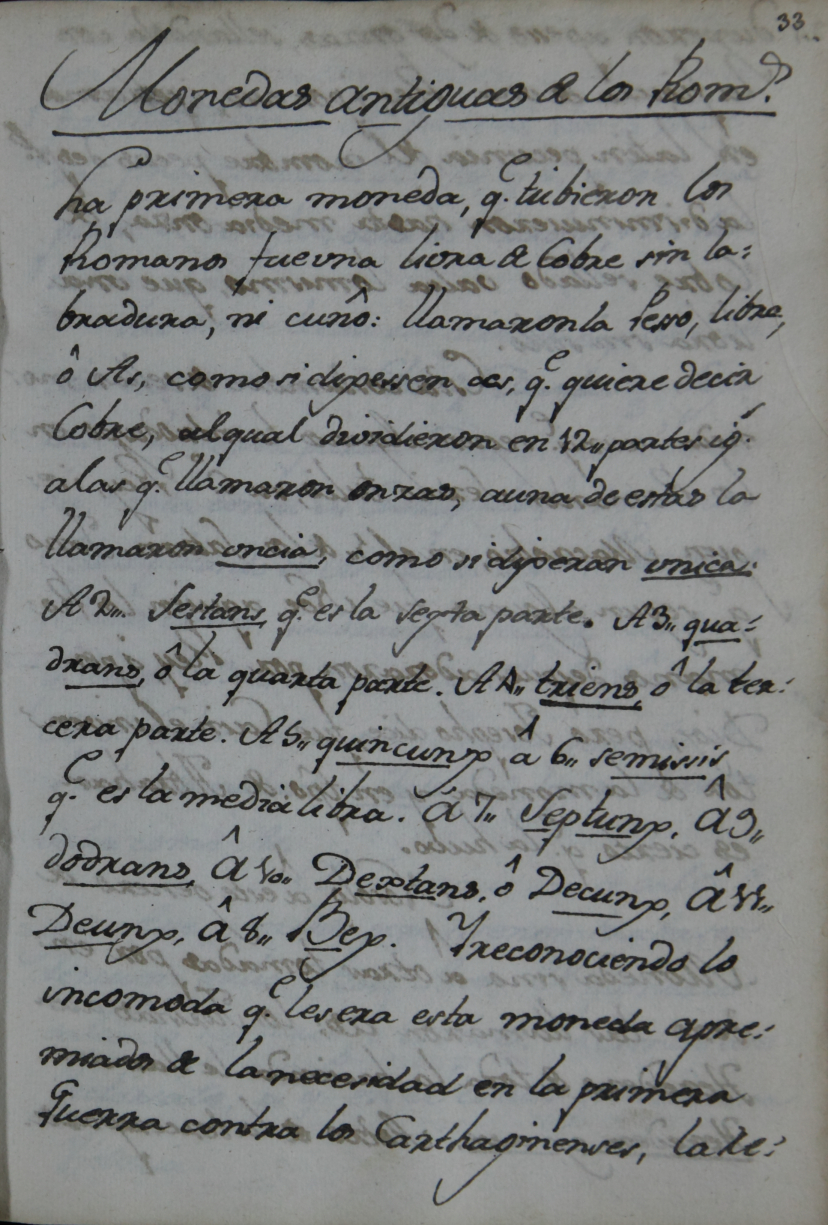 33.
Monedas antiguas de los Rom.s
La primera moneda, q.e tubieron los
Romanos fue vna livra de Cobre sin la=
bradura, ni cunô: llamaronla Peso, libra,
ô As, como si dixessen aes, q.e quiere decir
Cobre, al qual dividieron en 12,, partes ig.s
a las q.e llamaron onzas, a una de estas la
llamaron vncia, como si dixeran vnica.
A 2,,. Sextans, q.e es la sexta parte. A 3,, qua=
drans, ô la quarta parte. A 4,, triens, ô la ter=
cera parte. A 5,, quincunx, â 6,, semissis
q.e es la media libra. â 7,, Septunx. Â 9,,
dodrans, Â 10,, Dextans, ô Decunx, Â 11,,
Deunx, Â 8,, Bex. Y reconociendo lo
incomoda q.e les era esta moneda apre=
miados de la necesidad en la primera
Guerra contra los Carthaginenses, la Re=